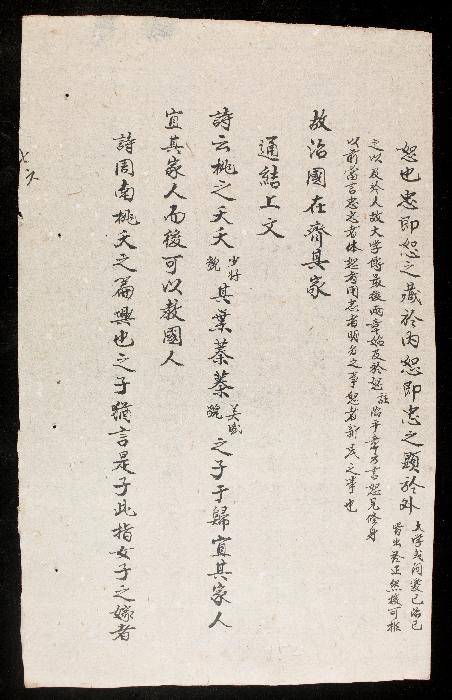 恕也忠即恕之藏於內恕即忠之顯於外大学或问爱己治己皆出於正然後可推
之以及於人故大学傳最後兩章始及於恕註治平章方言恕見修身
以前當言忠忠者体恕者用忠者明德之事恕者新民之事也
故治國在齊其家
通結上文
詩云桃之夭夭少好貌其葉蓁蓁美盛貌之子于歸宜其家人
宜其家人而後可以教國人
詩周南桃夭之篇興也之子猶言是子此指女子之嫁者